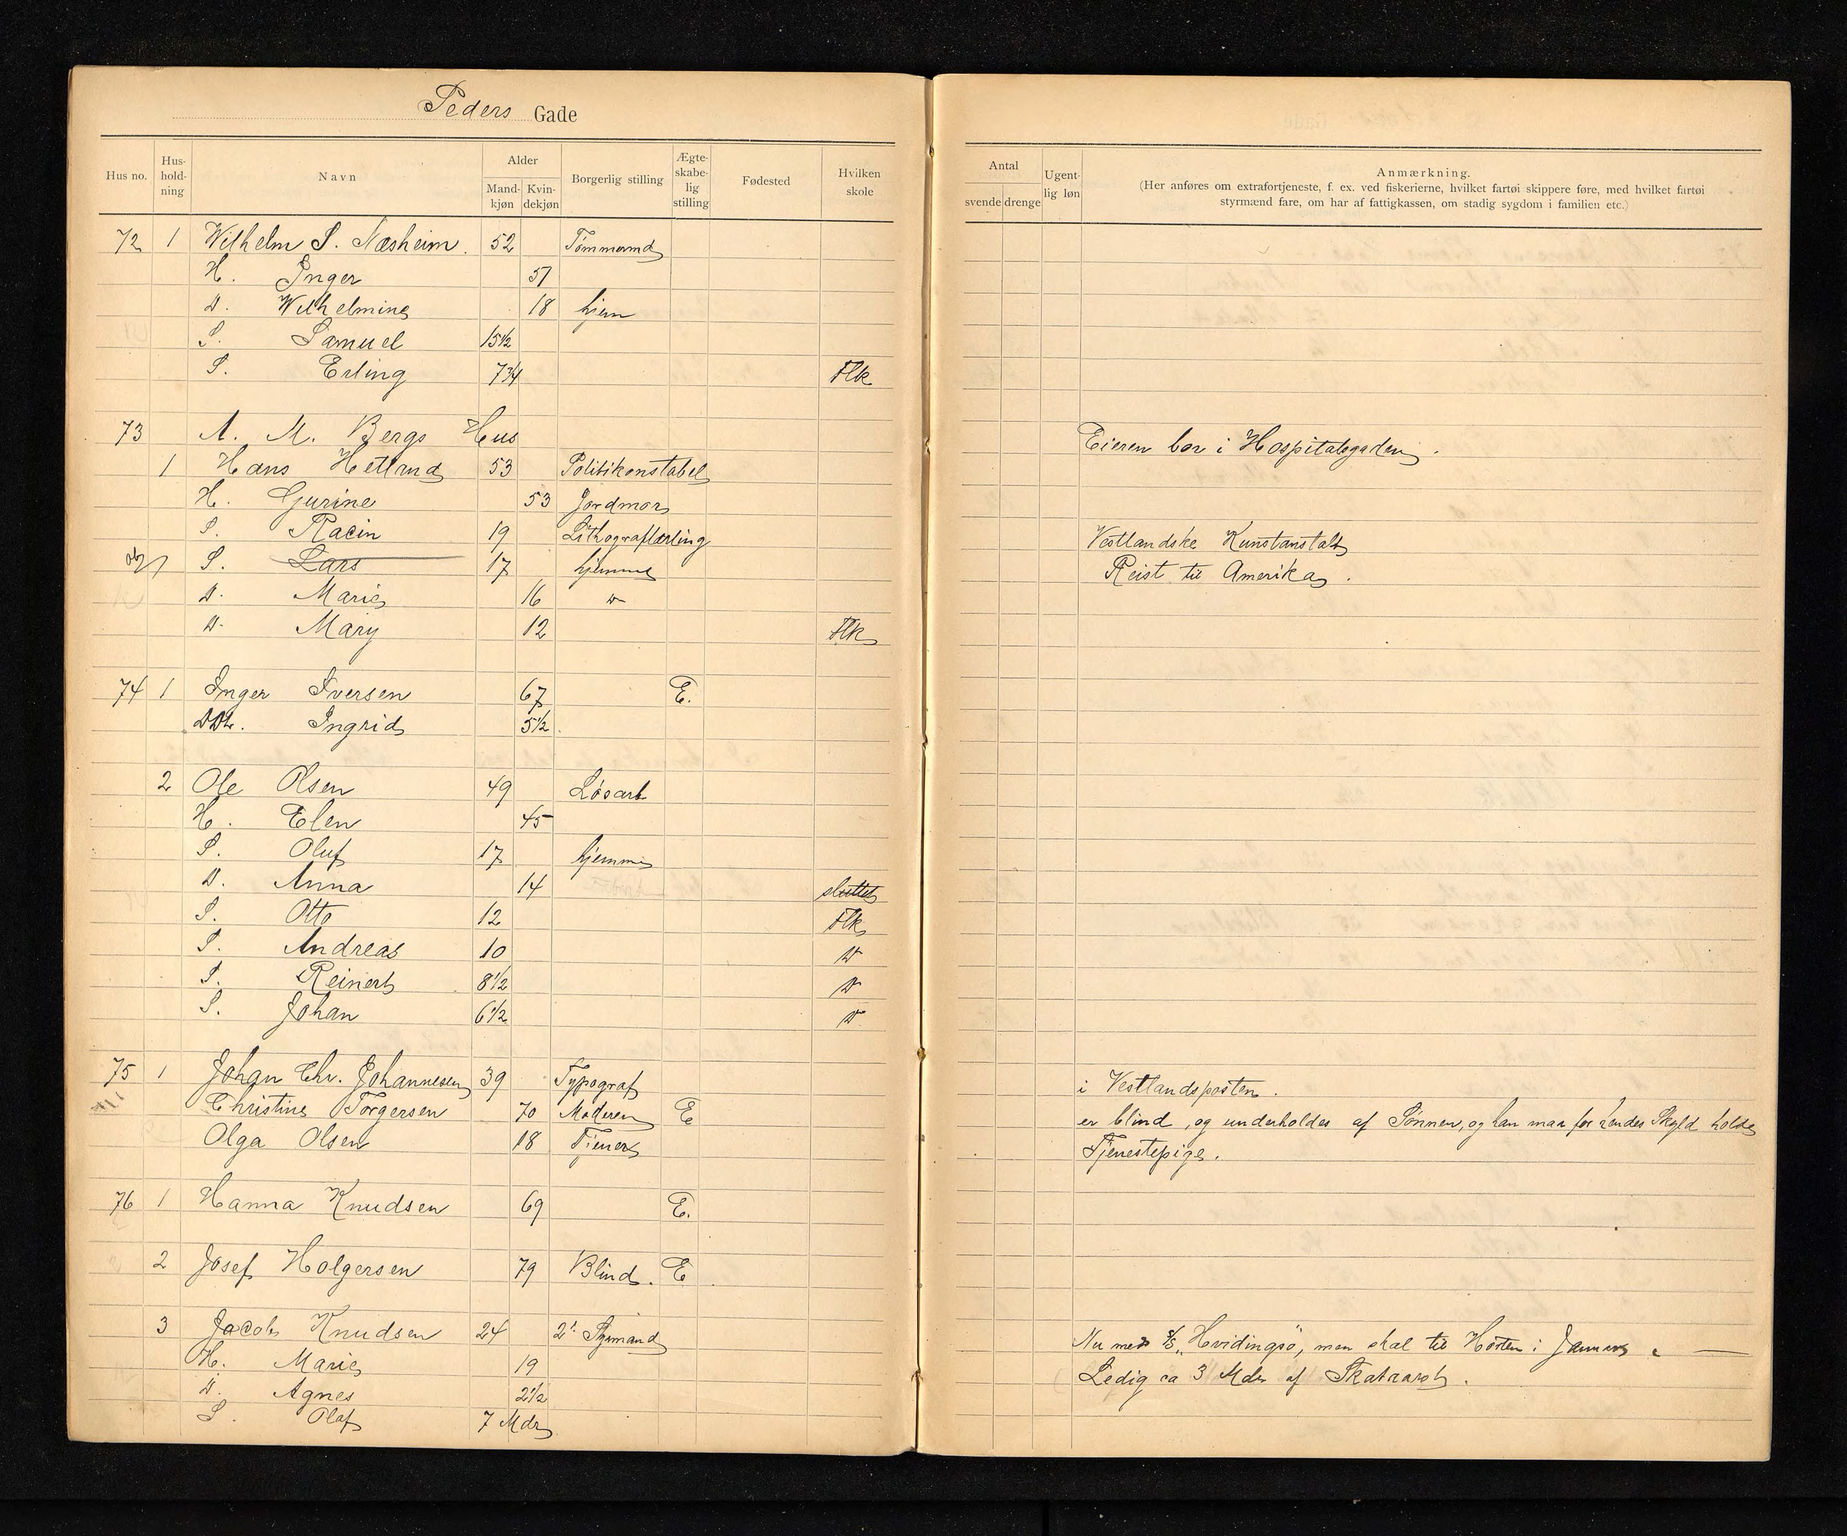 Peders Gade
Hus no. Hus-hold-ning Navn Alder Mand-kjøn Kvin-dekjøn Borgerlig stilling Ægte-skabe-lig stilling Fødested Hvilken skole
Antal svende drenge Ugent-lig løn Anmærkning.
(Her anføres om extrafortjeneste, f. ex. ved fiskerierne, hvilket fartøi skippere føre, med hvilket fartøi
styrmænd fare, om har af fattigkassen, om stadig sygdom i familien etc.)
72 1 Wilhelm S. Næsheim. 52 Tømmermd
H. Inger 51
D. Wilhelmine 18 hjem
S. Samuel 15 1/2
S. Erling 7 3/4 Flk
73 A. M. Bergs Hus Eieren bor i Hospitalsgaden.
1 Hans Hetland 53 Politikonstabel
H. Gurine 53 Jordmor
S. Racin 19 Lithograflærling Vestlandske Kunstanstalt
S. Lars 17 hjemme Reist til Amerika.
D. Marie 16 "
D. Mary 12 Flk
74 1 Inger Iversen 67 E.
DDtr. Ingrid 5 1/2
2 Ole Olsen 49 Løsarb
H. Elen 45
S. Oluf 17 hjemme
D. Anna 14 sluttet
S. Otto 12 Flk
S. Andreas 10 "
S. Reinert 8 1/2 "
S. Johan 6 1/2 "
75 1 Johan Chr. Johannesen 39 Typograf i Vestlandsposten.
Christine Torgersen 70 Moderen E er blind, og underholdes af Sønnen, og han maa for hendes Skyld holde
Olga Olsen 18 Tjener Tjenestepige.
76 1 Hanna Knudsen 69 E.
2 Josef Holgersen 79 Blind. E
3 Jacob Knudsen 24 2' Styrmand Nu med S/S "Hvidingsø", men skal til Horten i Januar.
H. Marie 19 Ledig ca 3 Mdr af Skatteaaret.
D. Agnes 2 1/2
S. Olaf 7 Mdr